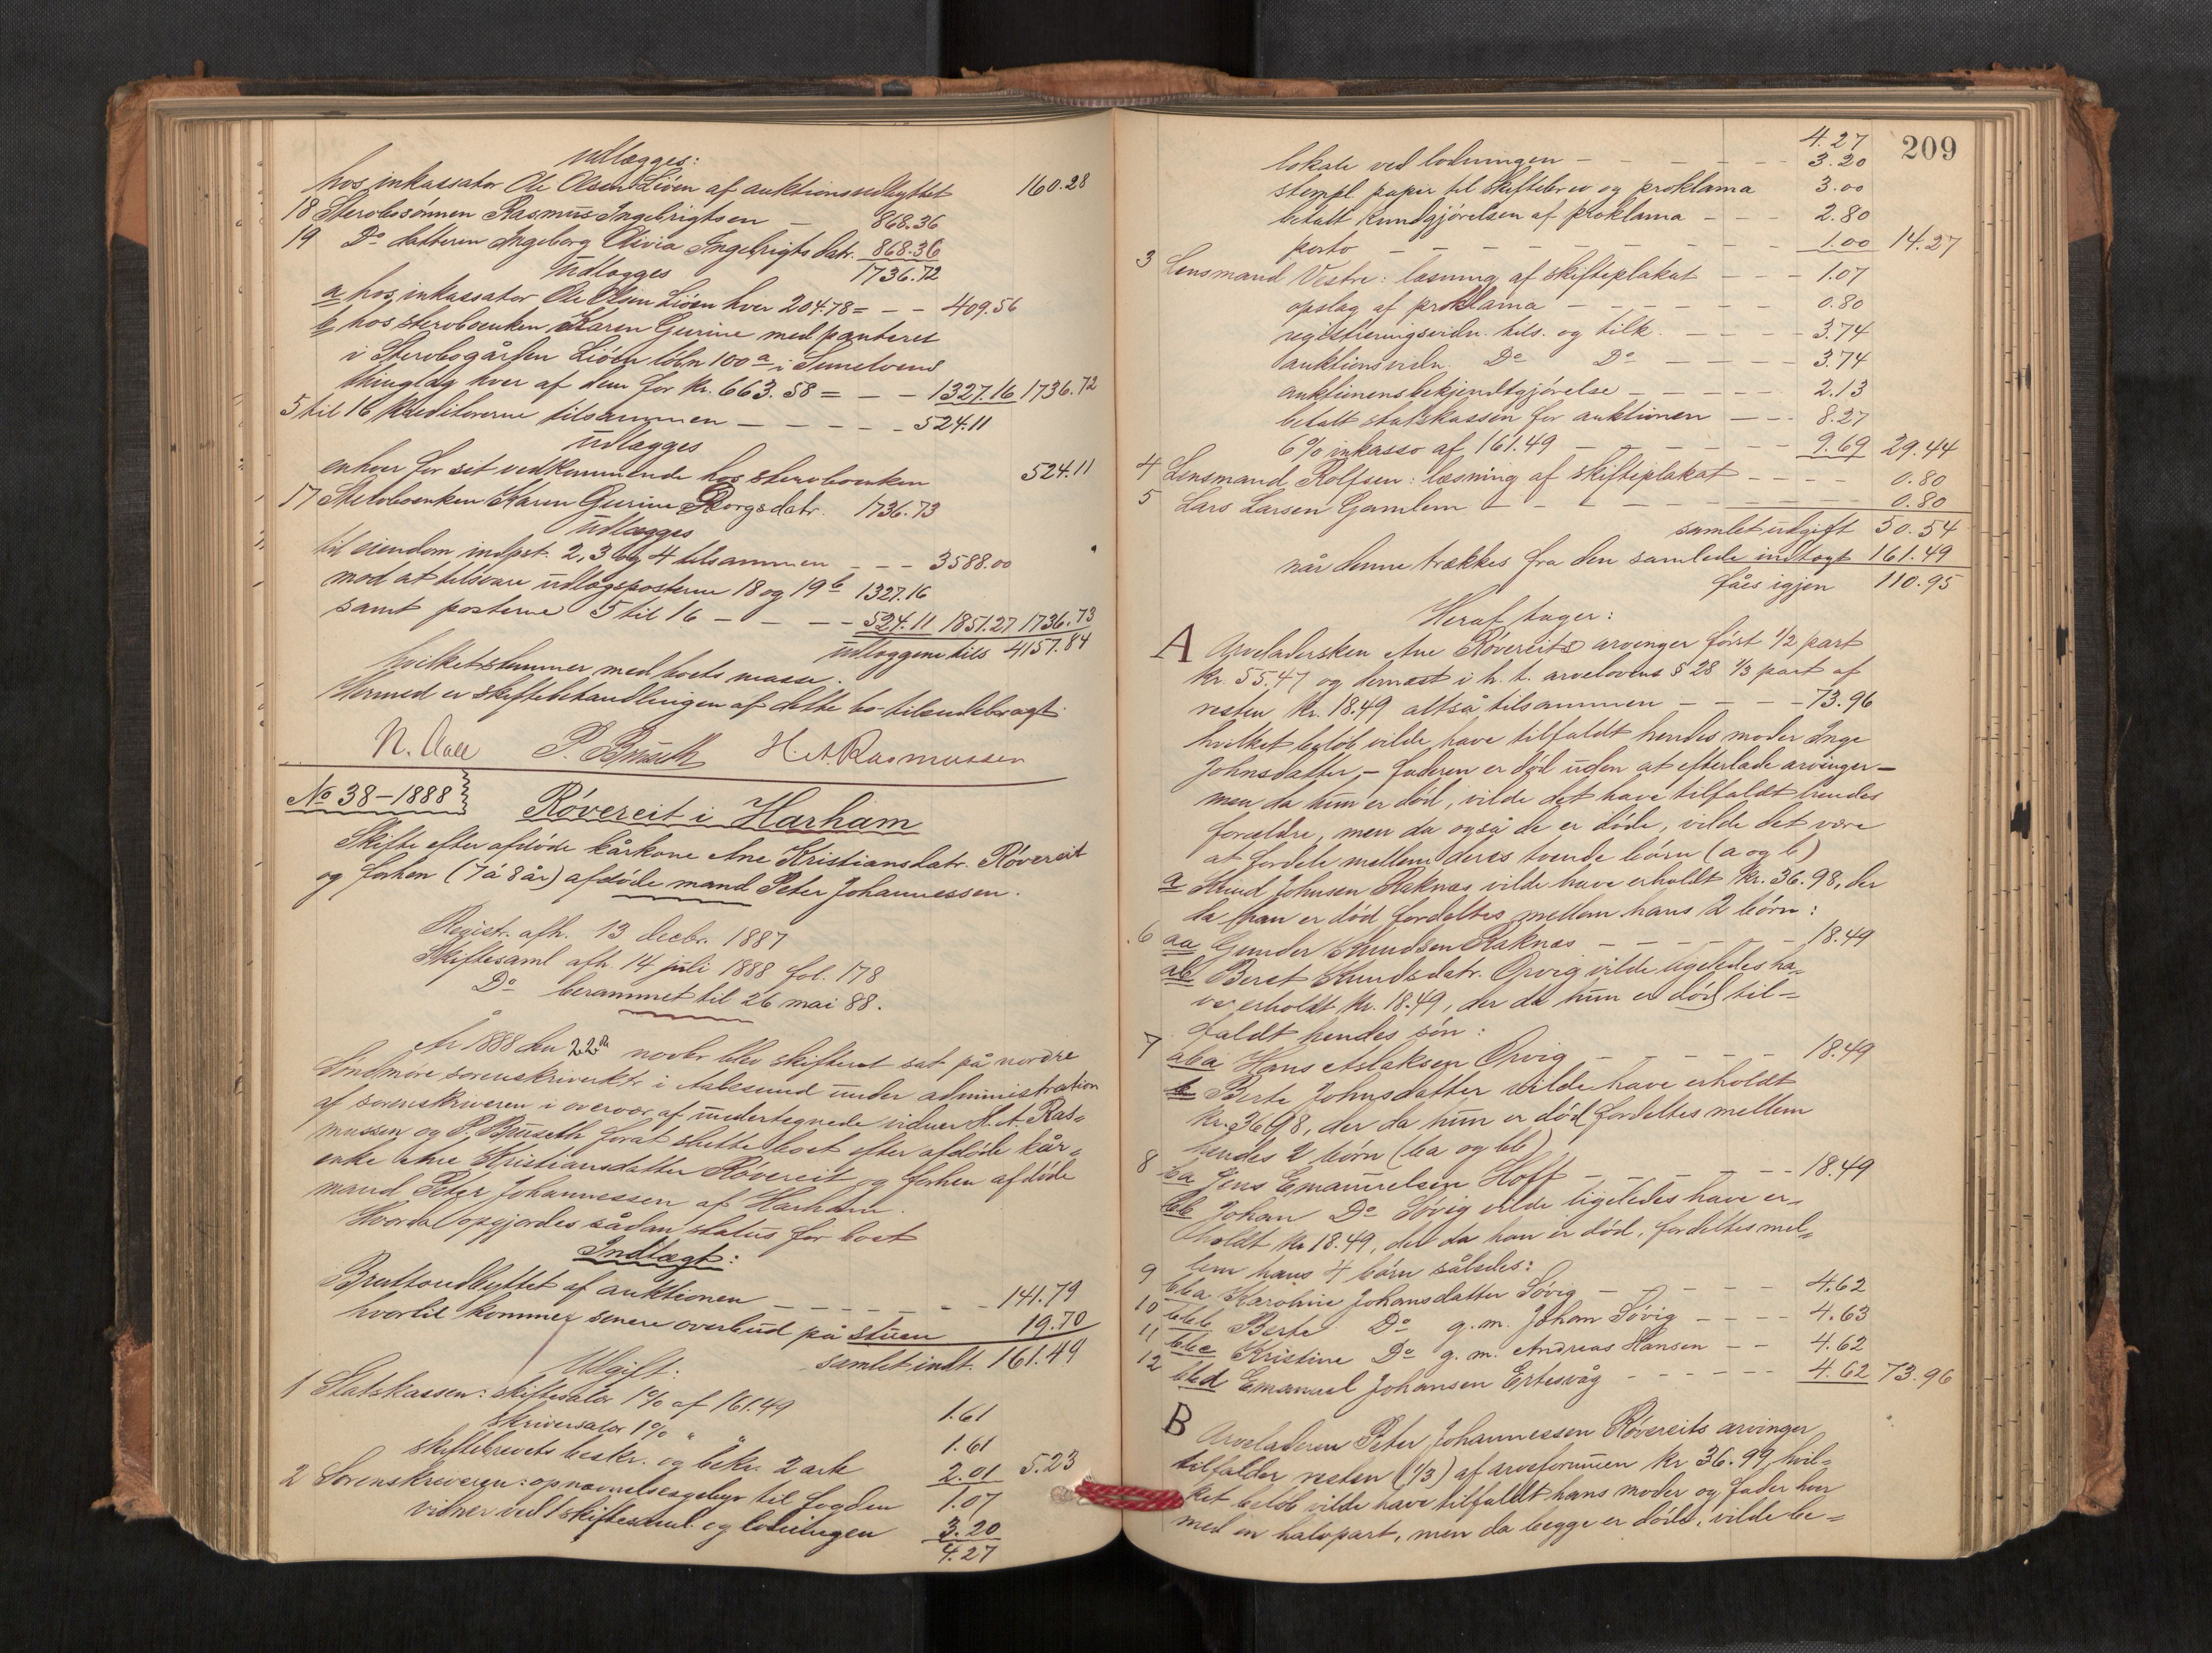 udlægges:
hos inkassator Ole Olsen Liöen af auktionsudbyttet 160.28
18 Stervbosönnen Rasmus Ingebrigtsen — 868.36
19 Do datteren Ingeborg Olivia Ingebrigtsdatr. 868.36
udlægges 1736.72
a hos inkassator Ole Olsen Liöen hver 204.78 = — — 409.56
b hos stervboenken Karen Gurine med panteret
i Stervbogården Liöen löbn 100a i Sunelvens
thinglag hver af dem for kr. 663.58 = — — 1327.16 1736.72
5 til 16 Kreditorerne tilsammen — — — — — 524.11
udlægges
enhver for sit vedkommende hos stervboenken 524.11
17 Stervboenken Karen Gurine datr. 1736.73
udlægges
til eiendom indpst. 2, 3 og 4 tilsammen — — — 3588.00
mod at tilsvare udlægsposterne 18 og 19 b 1327.16
samt posterne 5 til 16 — — — — 524.11 1851.27 1736.73
udlæggene tils 4157.84
hvilket stemmer med boets masse.
Hermed er skiftebehandlingen af dette bo tilendebragt.
N. Aall P. Bruseth H. A. Rasmussen
No 38–1888
Rövereit i Harham
Skifte efter afdöde kårkone Ane Kristiansdatr. Rövereit
og forhen (7 á 8 år) afdöde mand Peter Johannessen.
Registr. afh. 13 decbr. 1887
Skiftesaml afh. 14 juli 1888 fol. 178
Do berammet til 26 mai 88.
År 1888 den 22de novbr blev skifteret sat på nordre
Söndmöre sorenskriverktr i Aalesund under administration
af sorenskriveren i overvær af undertegnede vidner H. A. Ras=
mussen og P. Bruseth forat slutte boet efter afdöde kår=
enke Ane Kristiansdatter Rövereit og forhen afdöde
mand Peter Johannessen af Harham.
Hvorda opgjordes sådan status for boet
Indtægt:
Bruttoudbyttet af auktionen — — — — — — 141.79
hvortil kommer senere overbud på stuen 19.70
samlet indt. 161.49
Udgift:
1 Statskassen: skiftesalær 1% af 161.49 1.61
skriversalær 1% " " 1.61
skiftebrevets beskr. og bekr. 2 ark 2.01 5.23
2 Sorenskriveren: opnævnelsesgebyr til fogden 1.07
vidner ved 1 skiftesaml. og lodningen 3.20
4.27
209
4.27
lokale ved lodningen — — — — — — 3.20
stempl papir til skiftebrev og proklama 3.00
betalt kundgjörelsen af proklama — — — 2.80
porto — — — — — — — — 1.00 14.27
3 Lensmand Vestre: læsning af skifteplakat — — — 1.07
opslag af proklama — — — — — — 0.80
registreringsvidn. tils. og tilk. — — — — 3.74
auktionsvidn. Do Do — — — — 3.74
auktionensbekjendtgjörelse — — — — — 2.13
betalt statskassen for auktionen — — — 8.27
6% inkasso af 161.49 — — — — — — 9.69 29.44
4 Lensmand Rolfsen: læsning af skifteplakat — — — — 0.80
5 Lars Larsen Gamlem — — — — — — — — 0.80
samlet udgift 50.54
når denne trækkes fra den samlede indtægt 161.49
fåes igjen 110.95
Heraf tager:
A Arveladersken Ane Rövereits arvinger först 1/2 part
kr. 55.47 og dernæst i h. t. arvelovens § 28 1/3 part af
resten kr. 18.49 altså tilsammen — — — — 73.96
hvilket belöb vilde have tilfaldt hendes moder Inge
Johnsdatter, – faderen er död uden at efterlade arvinger –
men da hun er död, vilde det have tilfaldt hendes
forældre, men da også de er döde, vilde det være
at fordele mellem deres tvende börn (a og b)
a Knud Johnsen Raknæs vilde have erholdt kr. 36.98, der
da han er död fordeltes mellem hans 2 börn:
6 aa Gunder Knudsen Raknæs — — — — — 18.49
ab Beret Knudsdatr. Orvig vilde ligeledes ha=
ve erholdt kr. 18.49, der da hun er död til=
faldt hendes sön:
7 aba Hans Aslaksen Orvig — — — — — 18.49
b Berte Johnsdatter vilde have erholdt
kr. 36.98, der da hun er död fordeltes mellem
hendes 2 börn (ba og bb)
8 ba Jens Emanuelsen Hoff — — — — — — 18.49
bb Johan Do Sövig vilde ligeledes have er=
holdt kr 18.49, der da han er död, fordeltes mel=
lem hans 4 börn således:
9 bba Karoline Johansdatter Sövig — — — — — 4.62
10 bbb Berte Do g. m. Johan Sövig — — — — 4.63
11 bbc Kristine Do g. m. Andreas Hansen — — 4.62
12 bbd Emanuel Johansen Ertesvåg — — — — — 4.62 73.96
B Arveladeren Peter Johannessen Rövereits arvinger
tilfalder resten (1/3) af arveformuen kr 36.99, hvil=
ket belöb vilde have tilfaldt hans moder og fader hver
med en halvpart, men da begge er döde, vilde be=